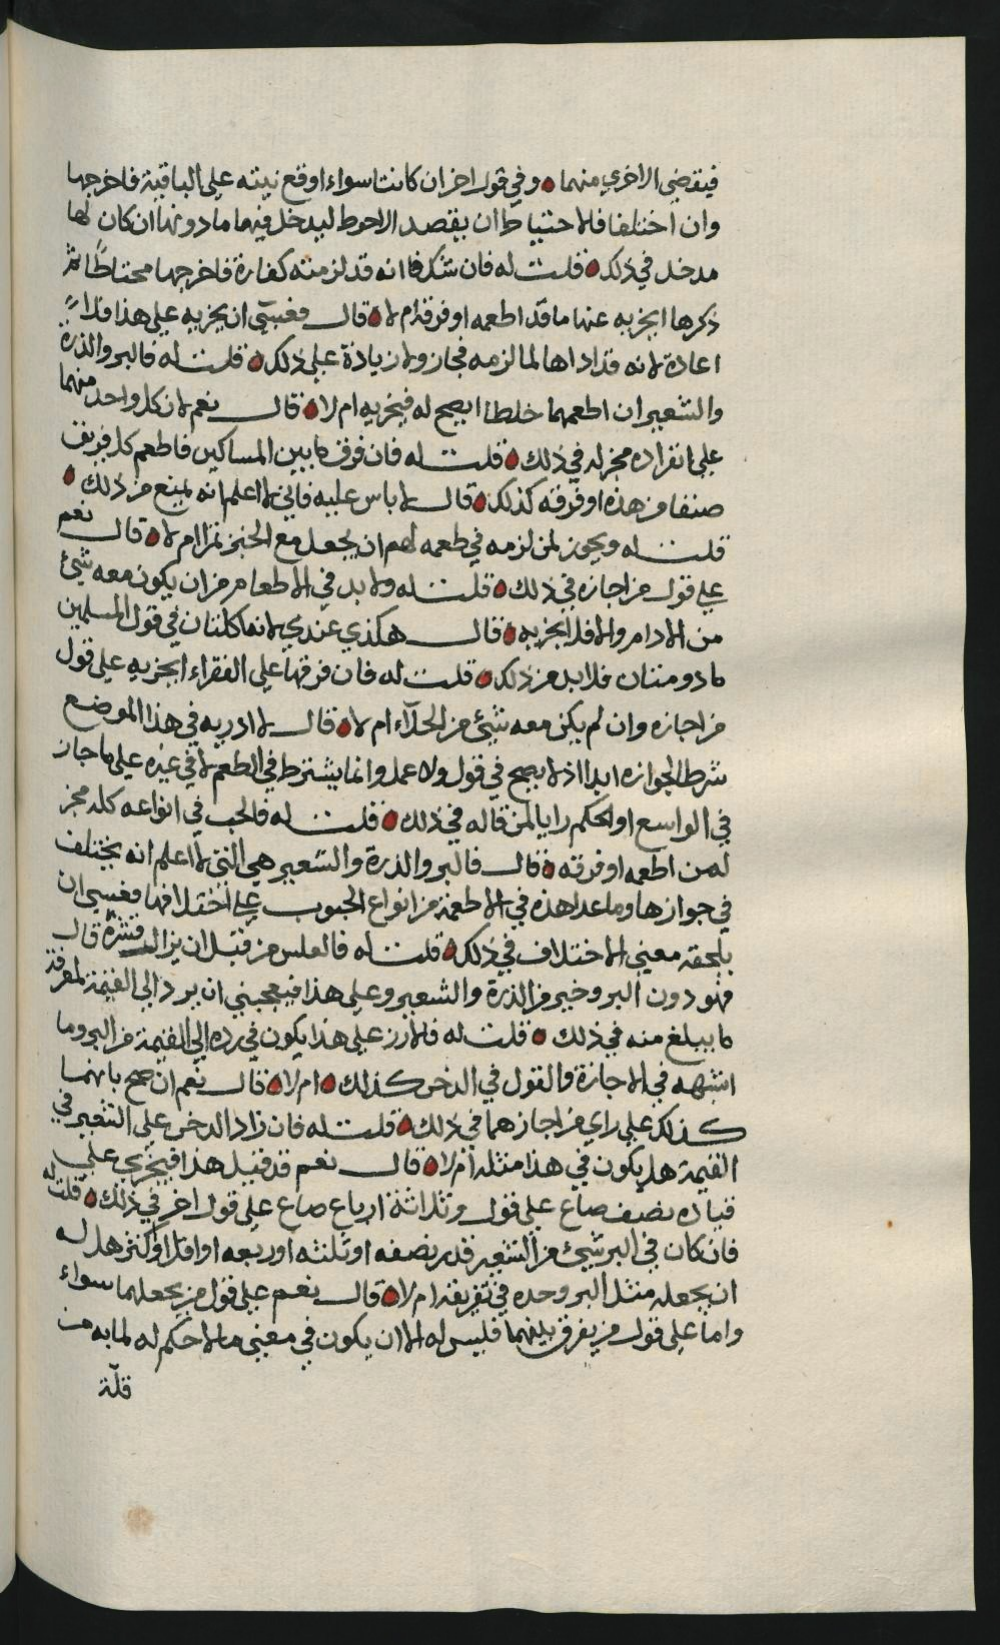 فيقضي الاخرى منهما ه وفي قول اخر ان كانتا سواء اوقع نيته على الباقية فاخرجها
وان اختلفا فلاحتياط ان يقصد الاحوط ليدخل فيها ما دونها ان كان لها
مدخل في ذلك ه قلت له فان شك فا انه قد لزمته كفارة فاخرجها محتاطا ثم
ذكرها ايجزيه عنها ما قد اطعمه او فرقه ام لا ه قال فعسى ان يجزيه على هذا فلا
اعادة لانه قد اداها لما لزمه فجاز ولا زيادة على ذلك ه قلت له فالبر والذرة
والشعير ان اطعمهما خلطا ايصح له فيجزيه ام لا ه قال نعم لان كل واحد منهما
على انفراده مجز له في ذلك ه قلت له فان فرق ما بين المساكين فاطعم كل فريق
صنفا من هذه او فرقه كذلك ه قال لا باس عليه فاني لا اعلم انه يمنع من ذلك ه
قلت له ويجوز لمن لزمه في طعمه لهم ان يجعل مع الخبز تمرا ام لا ه قال نعم
على قول من اجازه في ذلك ه قلت له ولا بد في الاطعام من ان يكون معه شيئ
من الادام والا فلا يجزيه ه قال هكذي عندي لانها كلتان في قول المسلمين
مادومتان فلا بد من ذلك ه قلت له فان فرقها على الفقراء ايجزيه على قول
من اجازه وان لم يكن معه شيئ من ام لا ه قال لا ادريه في هذا الموضع
شرط لجوازه ابدا اذ لا يصح في قول ولا عمل وانما يشترط في الطعم لا في غيره على ما جاز
في الواسع او الحكم رايا لمن قاله في ذلك ه قلت له فالحب في انواعه كله مجز
لمن اطعمه او فرقه ه قال فالبر والذرة والشعير هي التي لا اعلم انه يختلف
في جوازها وما عدا هذه في الاطعمة من انواع الحبوب على اختلافها فعسى ان
يلحقه معنى الاختلاف في ذلك ه قلت له فالعلس من قبل ان يزال قشره قال
فهو دون البر وخير من الذرة والشعير وعلى هذا فيعجبني ان يرد الى القيمة لمعرفة
ما يبلغ منه في ذلك ه قلت له فالارز على هذا يكون في رده الى القيمة من البر وما
اشبهه في الاجازة والقول في الدخن كذلك ه ام لا ه قال نعم ان صح بانهما
كذلك على راي من اجازهما في ذلك ه قلت له فان زاد الدخن على الشعير في
القيمة هل يكون في هذا مثله ام لا ه قال نعم قد قيل هذا فيجزي على
قياده نصف صاع على قول وثلاثة ارباع صاع على قول اخر في ذلك ه قلت له
فان كان في البر شيئ من الشعير قدر نصفه او ثلثه او ربعه او اقل او اكثر هل له
ان يجعله مثل البر وحده في تفريقه ام لا ه قال نعم على قول من يجعلهما سواء
واما على قول من يفرق بينهما فليس له الا ان يكون في معنى ما لا حكم له لما به من
قلة